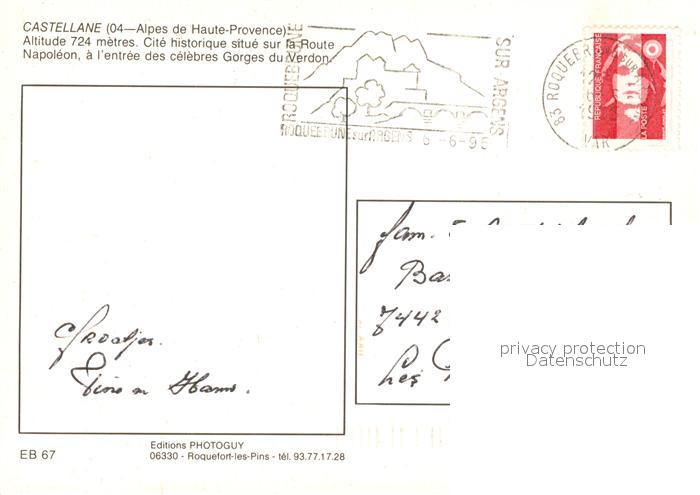 CASTELLANE (04—Alpes de Haute-Provence)
Altitude 724 mètres. Cité historique situé sur la Route
Napoléon, à l'entrée des célèbres Gorges du Verdon.
ROQUEBRUNE
SUR ARGENS
ROQUEBRUNE sur ARGENS 6-6-95
83 ROQUEBRUNE SUR
VAR
REPUBLIQUE FRANÇAISE
LA POSTE
fam.
Ba
7442
Les
privacy protection
Datenschutz
Groetjes.
Tino en Hans.
EB 67
Editions PHOTOGUY
06330 - Roquefort-les-Pins - tél. 93.77.17.28